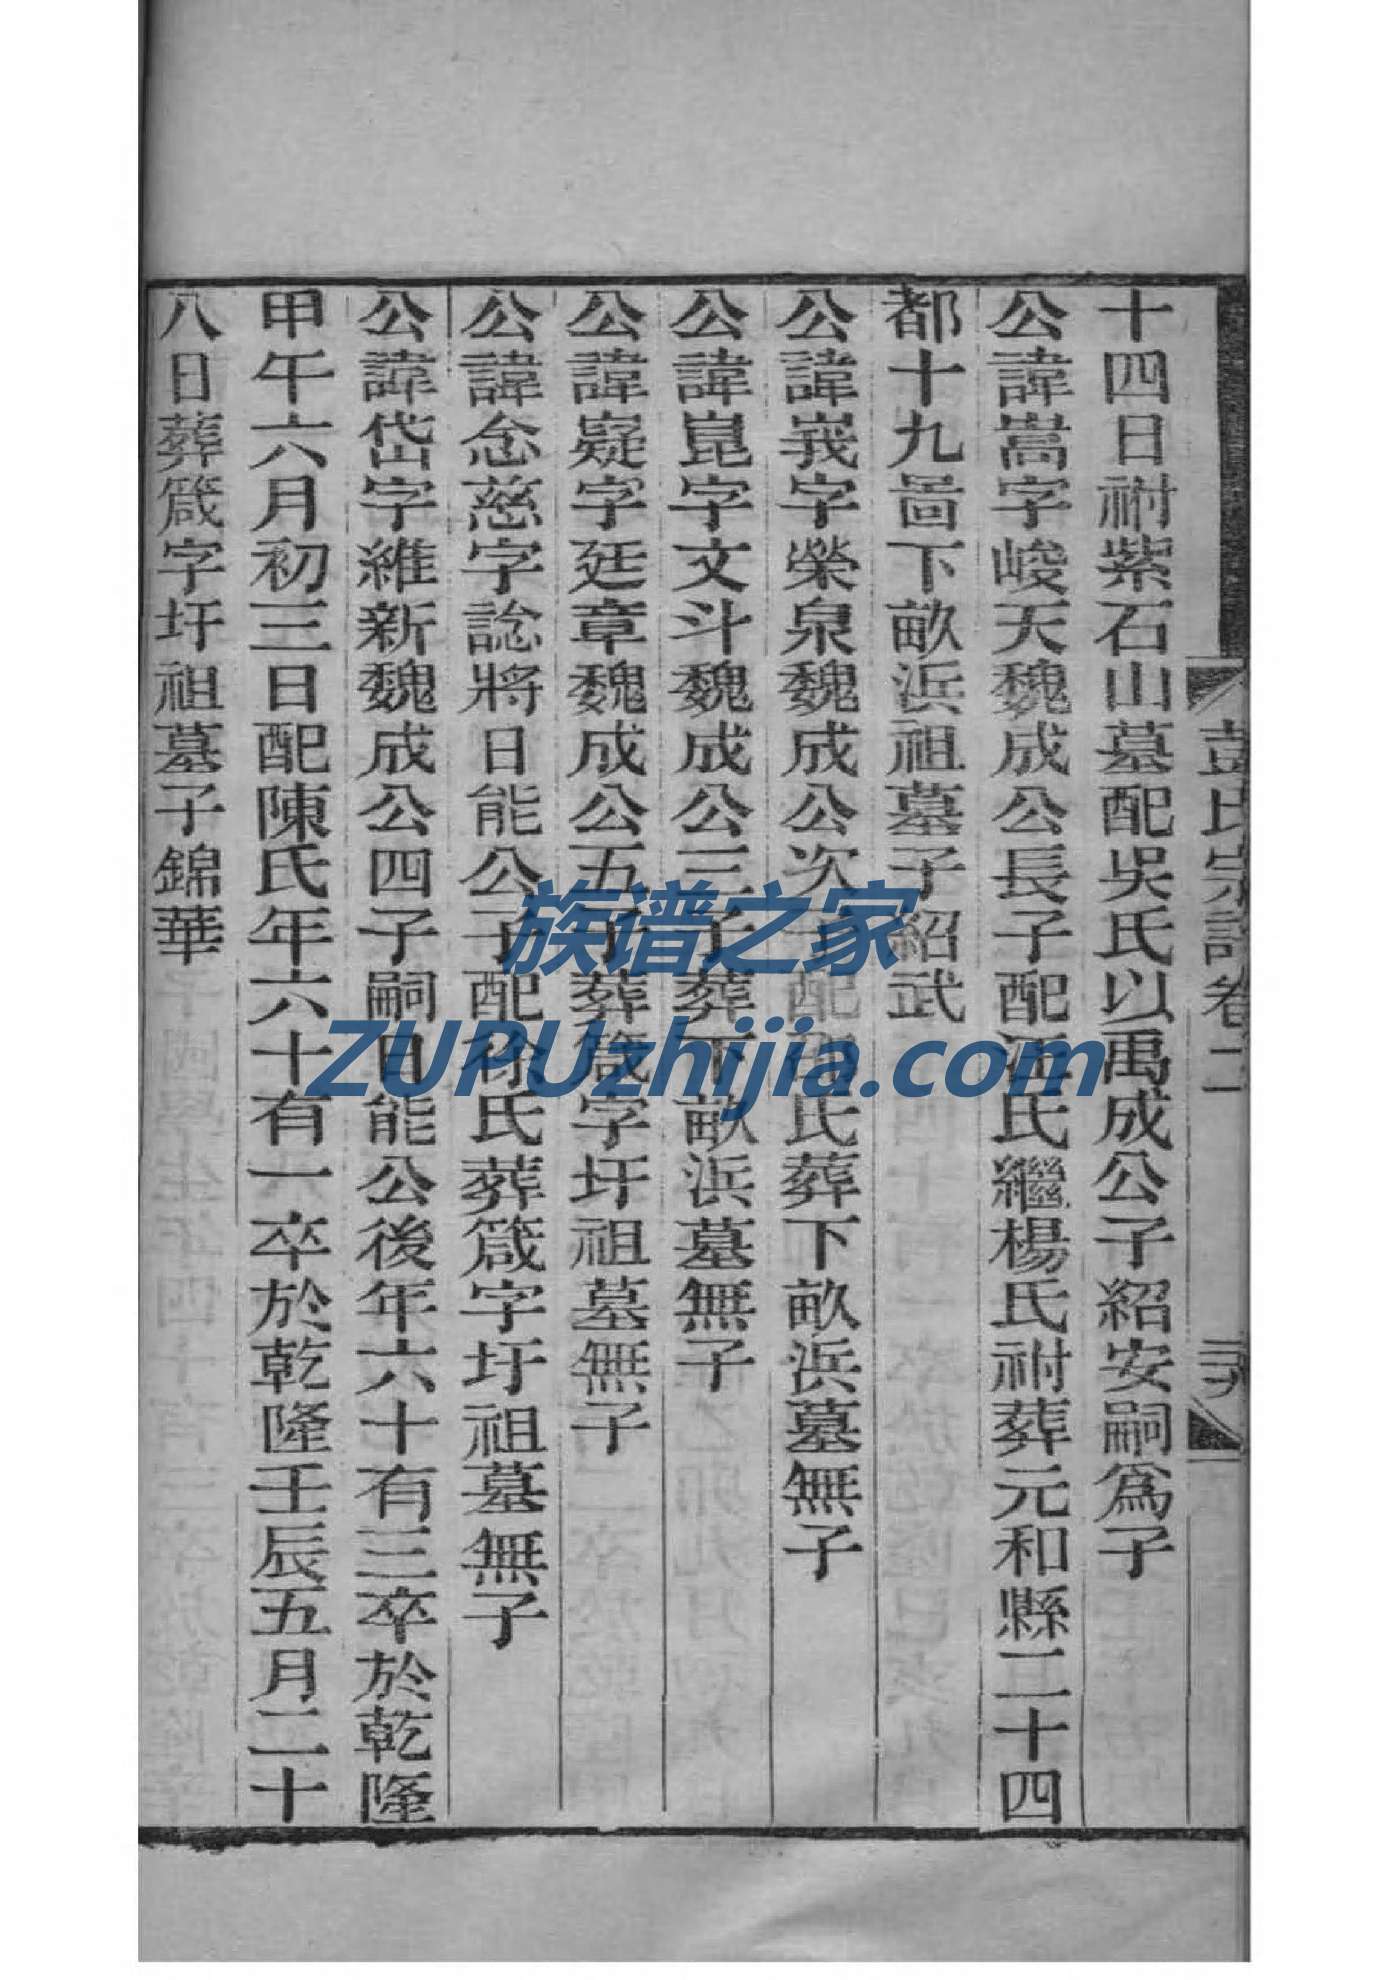 彭氏宗譜卷二
十四日祔紫石山墓配吳氏以禹成公子紹安嗣爲子
公諱嵩字峻天魏成公長子配汪氏繼楊氏祔葬元和縣二十四
都十九啚下畝浜祖墓子紹武
公諱峩字榮泉魏成公次子配 氏葬下畝浜墓無子
公諱崑字文斗魏成公三子葬下畝浜墓無子
公諱嶷字廷章魏成公五子葬箴字圩祖墓無子
公諱念慈字諗將日能公子配徐氏葬箴字圩祖墓無子
公諱岱字維新魏成公四子嗣日能公後年六十有三卒於乾隆
甲午六月初三日配陳氏年六十有一卒於乾隆壬辰五月二十
八日葬箴字圩祖墓子錦華
族谱之家
ZUPUzhijia.com